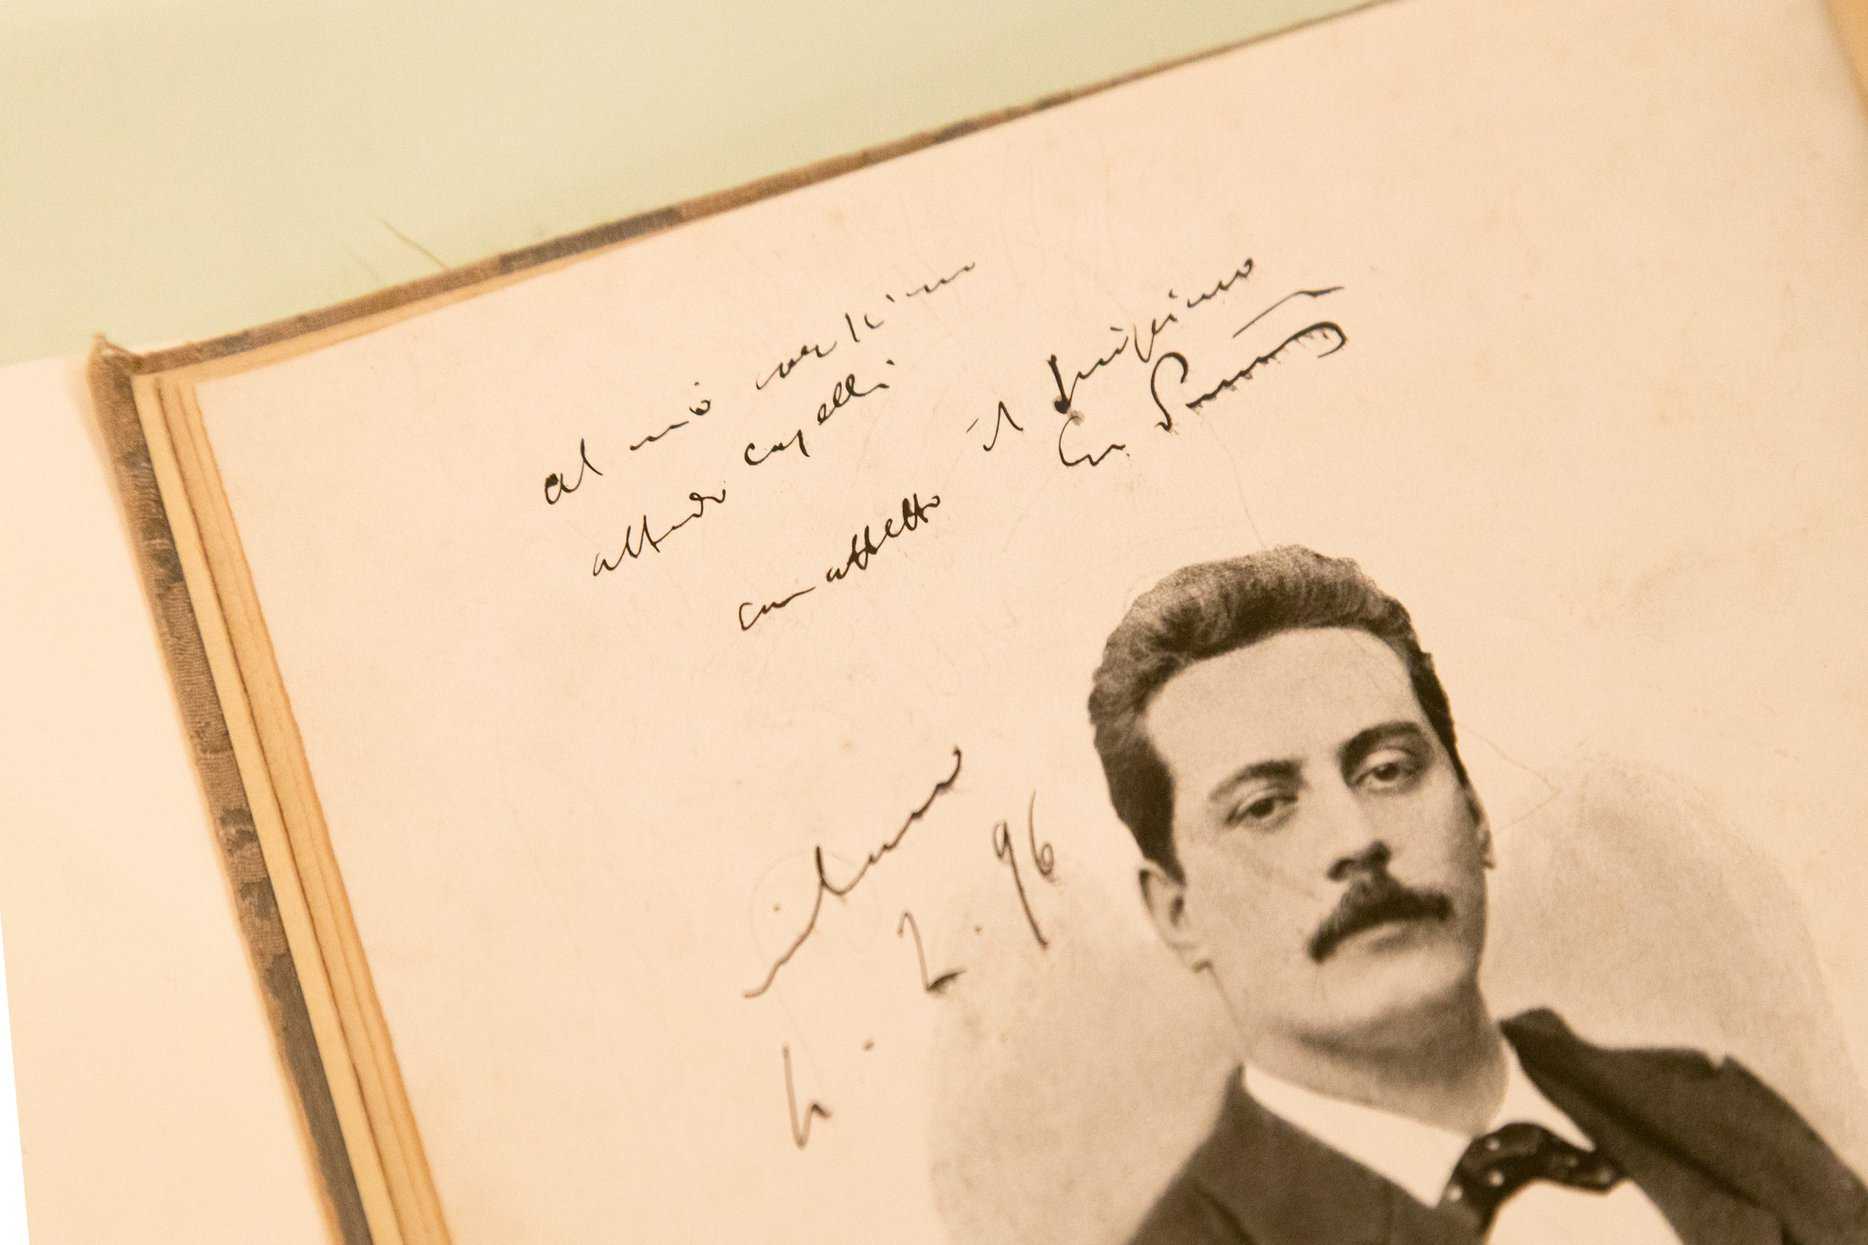 al mio carissimo
Alfredo Caselli
con affetto il
G. Puccini
Milano
2.96